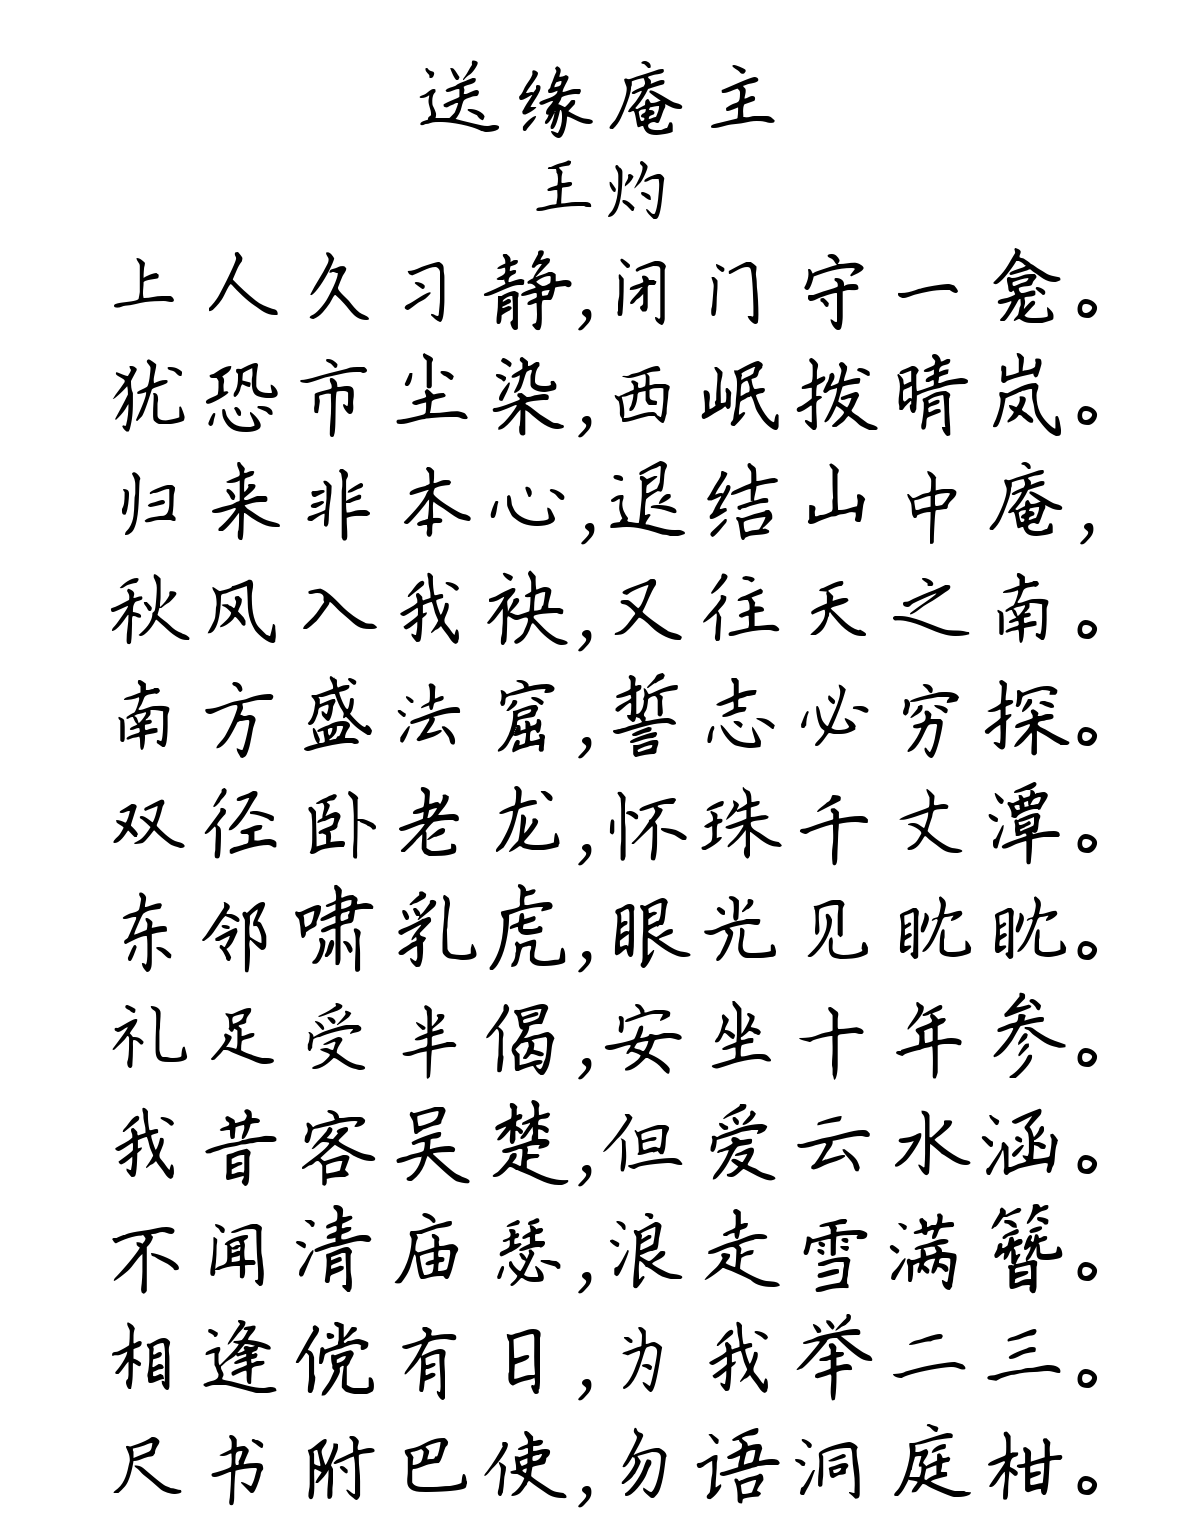 送缘庵主
王灼
上人久习静,闭门守一龛。
犹恐市尘染,西岷拨晴岚。
归来非本心,退结山中庵,
秋风入我袂,又往天之南。
南方盛法窟,誓志必穷探。
双径卧老龙,怀珠千丈潭。
东邻啸乳虎,眼光见眈眈。
礼足受半偈,安坐十年参。
我昔客吴楚,但爱云水涵。
不闻清庙瑟,浪走雪满簪。
相逢傥有日,为我举二三。
尺书附巴使,勿语洞庭柑。